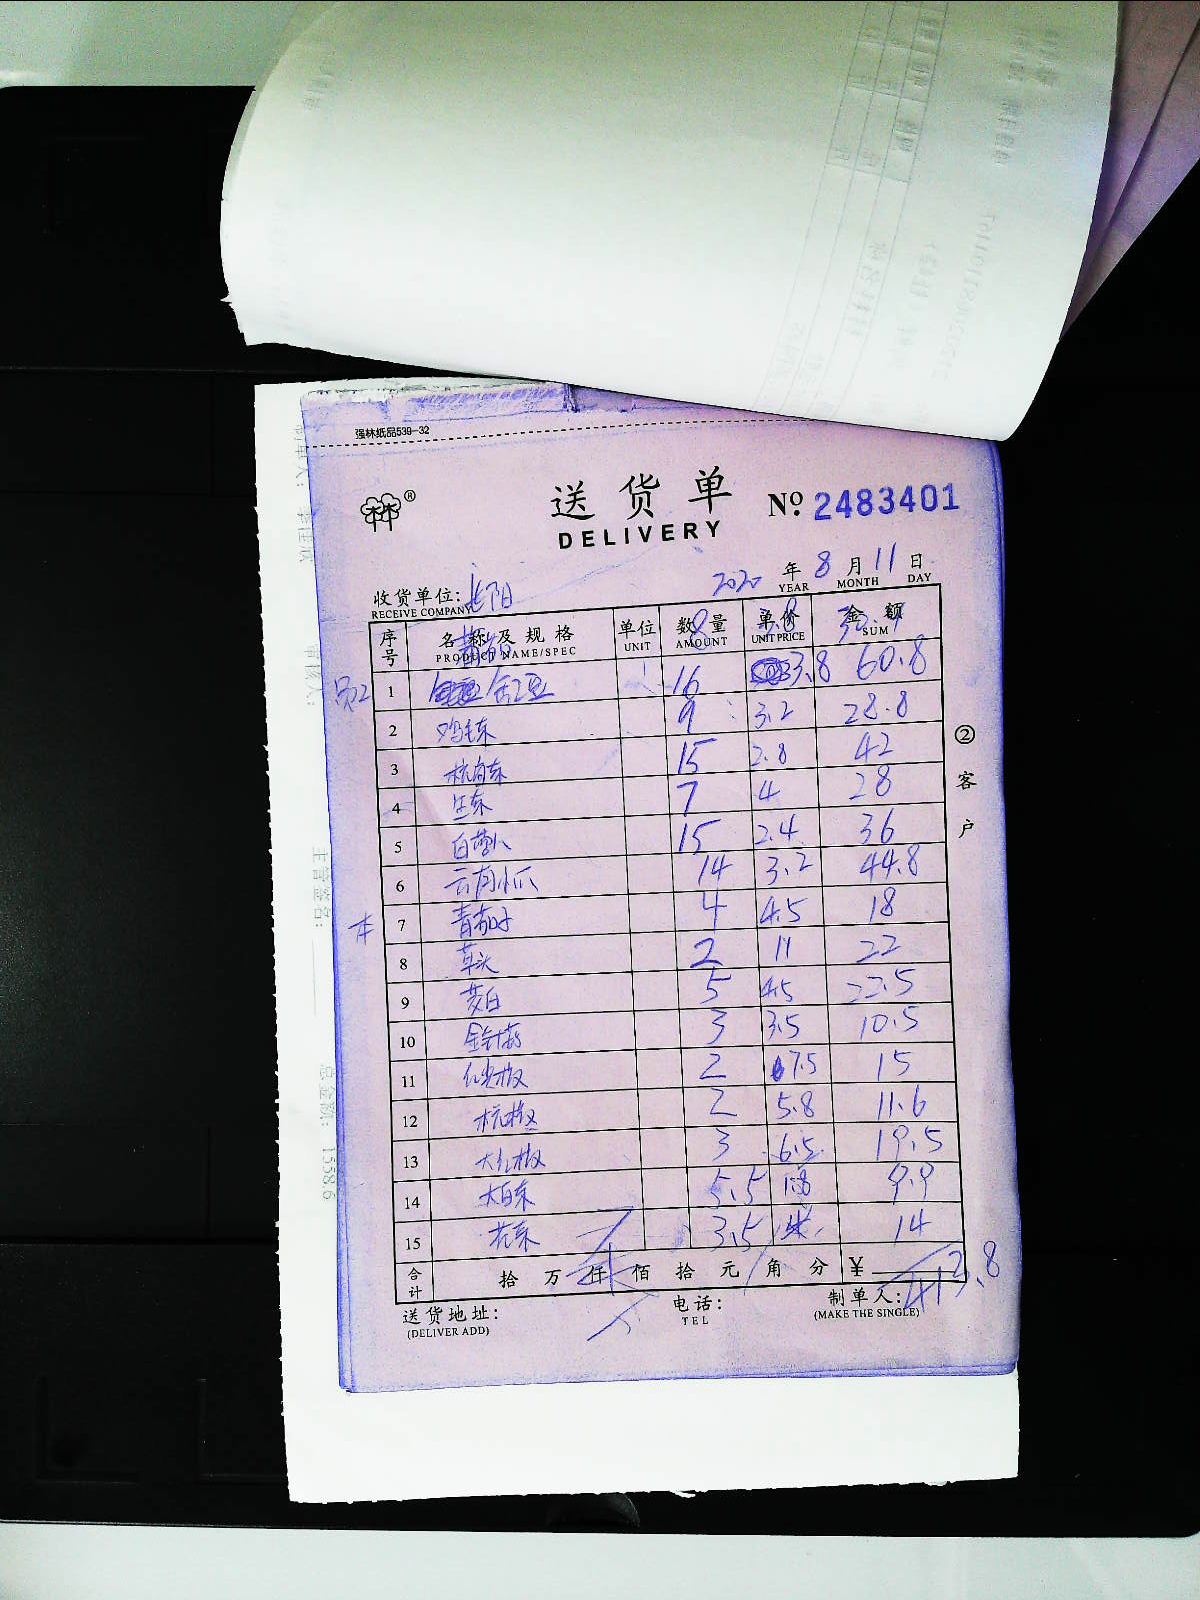 强林纸品539-32
送货单
DELIVERY
№ 2483401
2020 年 8 月 11 日
YEAR MONTH DAY
收货单位:
RECEIVE COMPANY
序号 名称及规格 单位 数量 单价 金额
PRODUCT NAME/SPEC UNIT AMOUNT UNIT PRICE SUM
1 16 3.8 60.8
2 鸡毛菜 9 3.2 28.8
3 杭白菜 15 2.8 42
4 生菜 7 4 28
5 白萝卜 15 2.4 36
6 云南小瓜 14 3.2 44.8
7 4 4.5 18
8 草头 2 11 22
9 茭白 5 4.5 22.5
10 金针菇 3 3.5 10.5
11 红尖椒 2 7.5 15
12 杭椒 2 5.8 11.6
13 大红椒 3 6.5 19.5
14 大白菜 5.5 1.8 9.9
15 花菜 3.5 4 14
合计 拾 万 仟 佰 拾 元 角 分 ¥ 413.8
送货地址: 电话: 制单人:
(DELIVER ADD) TEL (MAKE THE SINGLE)
②客户
主管签名:
总金额: 1558.6
审核人: